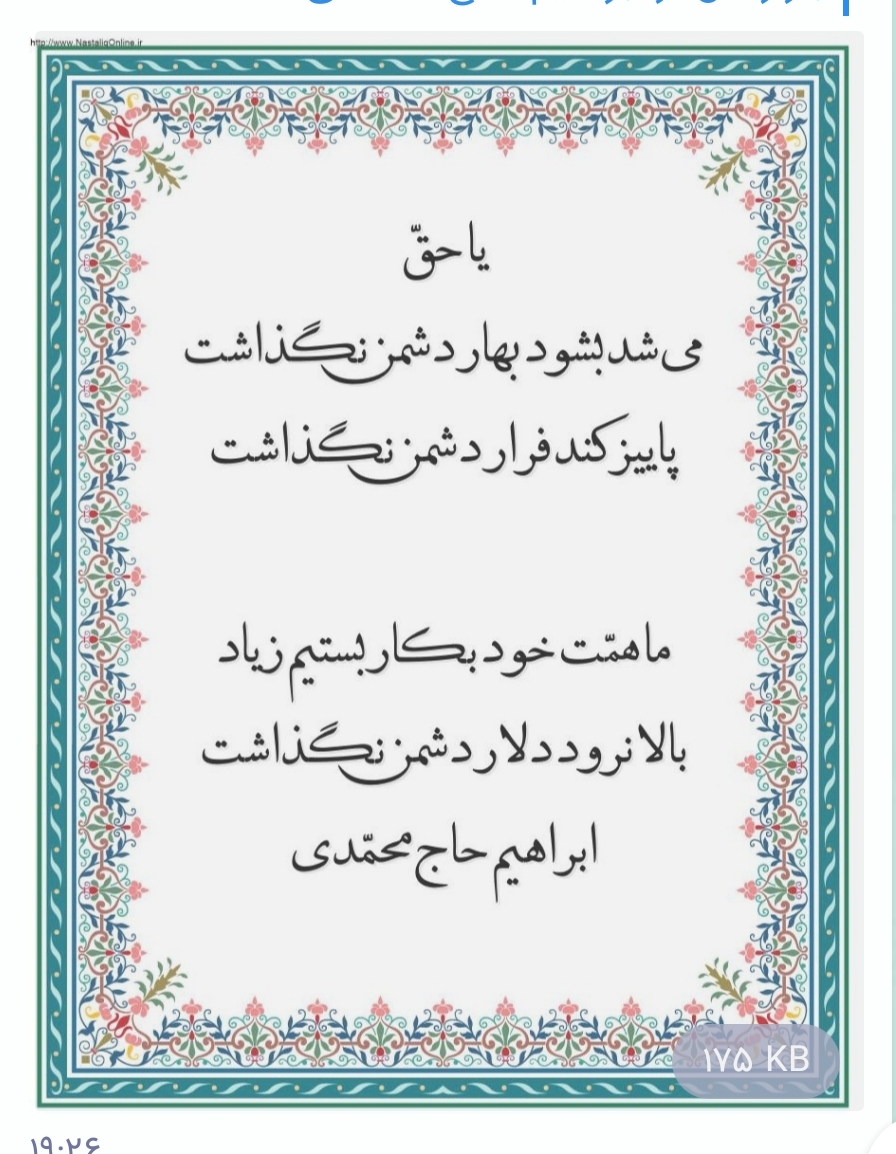 http://www.NastaliqOnline.ir
یا حقّ
می شد بشود بهار دشمن نگذاشت
پاییز کند فرار دشمن نگذاشت
ما همّت خود بکار بستیم زیاد
بالا نرود دلار دشمن نگذاشت
ابراهیم حاج محمّدی
۱۷۵ KB
۱۹:۲۶